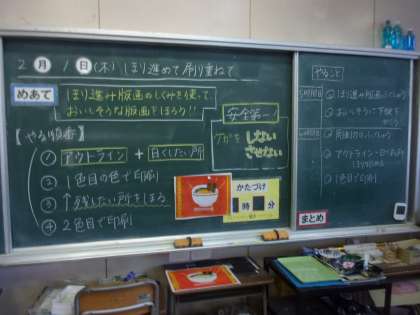 2月1日(木) ほり進めて刷り重ねて
めあて
ほり進み版画のしくみを使って
おいしそうな版画をほろう!!
安全第一
ケガを しない
させない
【やる順番】
① アウトライン + 白くしたい所
② 1色目の色で印刷
③ ↑残したい所をほる
④ 2色目で印刷
かたづけ
時 分
やること
① ほり進み版画のしくみ
② おいそうに下描き
① アウトライン・白くする所
③ 1色目で印刷
まとめ